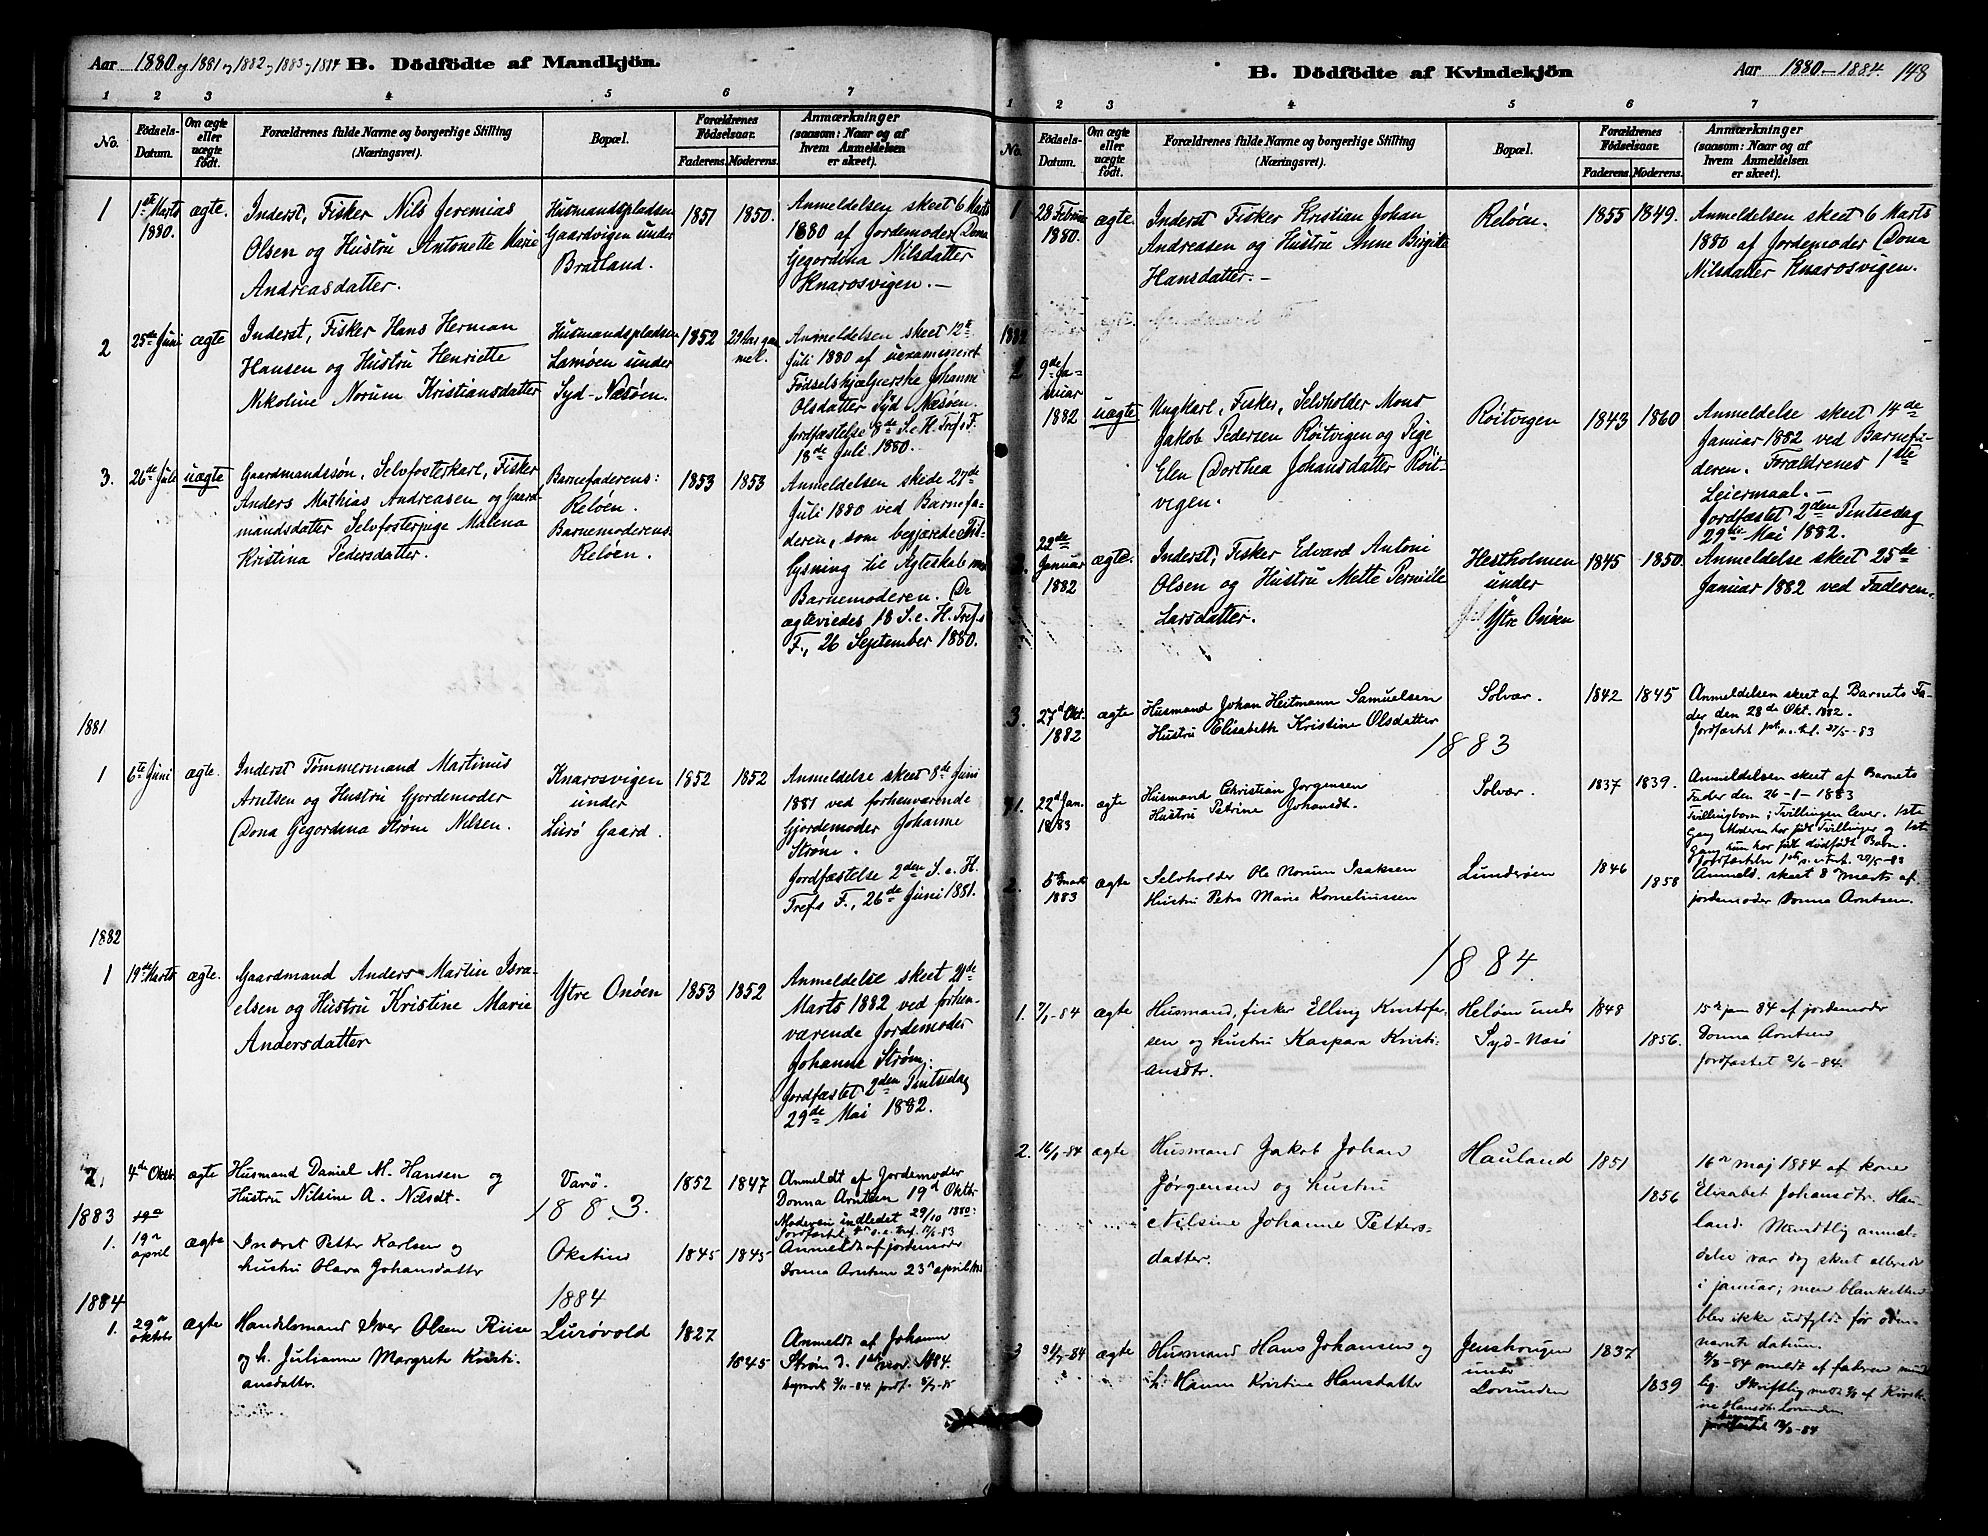 Aar 1880 og 1881 og 1882 og 1883 og 1884 B. Dödfödte af Mandkjön.
1 2 3 4 5 6 7
No.
Födsels-
Datum.
Om ægte
eller
uægte
födt.
Forældrenes fulde Navne og borgerlige Stilling
(Næringsvei).
Bopæl.
Forældrenes
Födselsaar.
Faderens. Moderens.
Anmærkninger
(saasom: Naar og af
hvem Anmeldelsen
er skeet).
1 1ste Marts 1880. ægte.
Inderst, Fisker Nils Jeremias
Olsen og Hustru Antonette Marie
Andreasdatter.
Husmandspladsen
Gaardvigen under
Bratland.
1851 1850.
Anmeldelsen skeet 6 Marts
1880 af Jordemoder Dona
Gegordina Nilsdatter
Knarosvigen. —
2 25de Juni ægte
Inderst, Fisker Hans Herman
Hansen og Hustru Henriette
Nikoline Norum Kristiansdatter
Husmandspladsen
Lamøen under
Syd-Næsøen.
1852 29 Aar gam
mel.
Anmeldelsen skeet 12te
Juli 1880 af uexamineret
Födselshjælperske Johanne
Olsdatter Syd Næsøen.
Jordfæstelse 8de S. e. H. Tref. F.
18de Juli 1880.
3. 26de Juli uægte
Gaardmandssøn, Selvfosterkarl, Fisker
Anders Mathias Andreasen og Gaard-
mandsdatter Selvfosterpige Malena
Kristina Pedersdatter.
Barnefaderens:
Reløen.
Barnemoderens
Reløen.
1853 1853
Anmeldelsen skede 27de
Juli 1880 ved Barnefa-
deren, som begjærede Til-
lysning til Ægteskab med
Barnemoderen. De
ægteviedes 18 S. e. H. Tref.s
F., 26 September 1880.
1881
1 6te Juni ægte.
Inderst Tömmermand Martinus
Arntsen og Hustru Gjordemoder
Dona Gegordina Strøm Nilsen.
Knarosvigen
under
Lurö Gaard.
1852 1852
Anmeldelse skeet 8de Juni
1881 ved forhenværende
Gjordemoder Johanne
Strøm.
Jordfæstelse 2den S. e. H.
Tref.s F., 26de Juni 1881.
1882
1 19de Marts ægte.
Gaardmand Anders Martin Isra-
elsen og Hustru Kristine Marie
Andersdatter
Ytre Onöen
1853 1852
Anmeldelse skeet 21de
Marts 1882 ved forhen-
værende Jordemoder
Johanne Strøm.
Jordfæstet 2den Pintsedag
29de Mai 1882.
2. 4de Oktbr. ægte
Husmand Daniel M. Hansen og
Hustru Nilsine A. Nilsdt.
Varö.
1852 1847
Anmeldt af Jordemoder
Donna Arntsen 19d Oktbr
Moderen indledet 29/10 1880:
1883
1883.
1. 19n april ægte
Inderst Petter Karlsen og
hustru Olava Johansdatter
Okstind
1845 1845
Anmeldt af jordemoder
Donna Arntsen 23n april
1884
1884
1. 29n oktbr ægte
Handelsmand Iver Olsen Riise
og h. Julianne Margrete Kristi-
ansdatter.
Lurövold
1827
1845
Anmeldt af Johanne
Strøm d. 1ste nov. 1884.
B. Dödfödte af Kvindekjön
Aar 1880–1884. 148
1 2 3 4 5 6 7
No.
Födsels-
Datum.
Om ægte
eller
uægte
födt.
Forældrenes fulde Navne og borgerlige Stilling
(Næringsvei).
Bopæl.
Forældrenes
Födselsaar.
Faderens. Moderens.
Anmærkninger
(saasom: Naar og af
hvem Anmeldelsen
er skeet).
1 28 Februar 1880. ægte.
Inderst Fisker Kristian Johan
Andreasen og Hustru Anne Birgitte
Hansdatter. —
Reløen.
1855 1849.
Anmeldelsen skeet 6 Marts
1880 af Jordemoder Dona
Nilsdatter Knarosvigen.
1882
1 9de Ja-
nuar
1882 uægte
Ungkarl, Fisker, Selvholder Mons
Jakob Pedersen Röitvigen og Pige
Elen Dorthea Johansdatter Röit-
vigen.
Röitvigen
1843 1860
Anmeldelse skeet 14de
Januar 1882 ved Barnefa-
deren. Forældrenes 1ste
Leiermaal. —
Jordfæstet 2den Pintsedag
29de Mai 1882.
2. 22de
Januar
1882 ægte.
Inderst, Fisker Edvard Antoni
Olsen og Hustru Mette Pernille
Larsdatter.
Hestholmen
under
Ytre Onöen
1845 1850
Anmeldelse skeet 25de
Januar 1882 ved Faderen.
3. 27d Okt.
1882 ægte
Husmand Johan Heitmann Samuelsen
Hustru Elisabeth Kristine Olsdatter
Solvær.
1842 1845
Anmeldelsen skeet af Barnets Fa-
der den 28de Okt. 1882.
1883
1. 22d Jan.
1883 ægte
Husmand Christian Jørgensen
Hustru Petrine Johansdt.
Solvær.
1837 1839.
Anmeldelsen skeet af Barnets
Fader den 26-1-1883
Tvillingbarn; Tvillingen lever. 1ste
Gang Moderen har født Tvillinger og 1ste
Gang hun har født dødfødt Barn.
2. 5 marts
1883 ægte
Selvholder Ole Norum Isaksen
Hustru Petra Marie Korneliussen
Lunderöen
1846
1858
Anmeld. skeet 8n marts af
jordemoder Donna Arntsen.
1884.
1. 7/1-84 ægte
Husmand, fisker Elling Kristofer-
sen og hustru Kaspara Kristi-
ansdtr.
Heløen under
Syd-Næsö
1848
1856.
15n jan 84 af jordemoder
Donna Arntsen
jordfæstet 2/6-84.
2. 16/1-84 ægte
Husmand Jakob Johan
Jørgensen og hustru
Nilsine Johanne Petters-
datter.
Hauland
1851
1856
16n maj 1884 af kone
Elisabet Johansdtr. Hau-
land. Mundtlig anmel-
delse var dog skeet allerede
i januar; men blanketten
blev ikke udfyldt før oven-
nævnte datum.
3 31/7-84 ægte
Husmand Hans Johansen og
h. Hanna Kristine Hansdatter
Jenshougen
under
Lovunden
1837
1839
3/8-84 meldt af faderen mundt-
lig. Skriftlig meldt af Kirsti-
ne Hansdtr. Lovunden